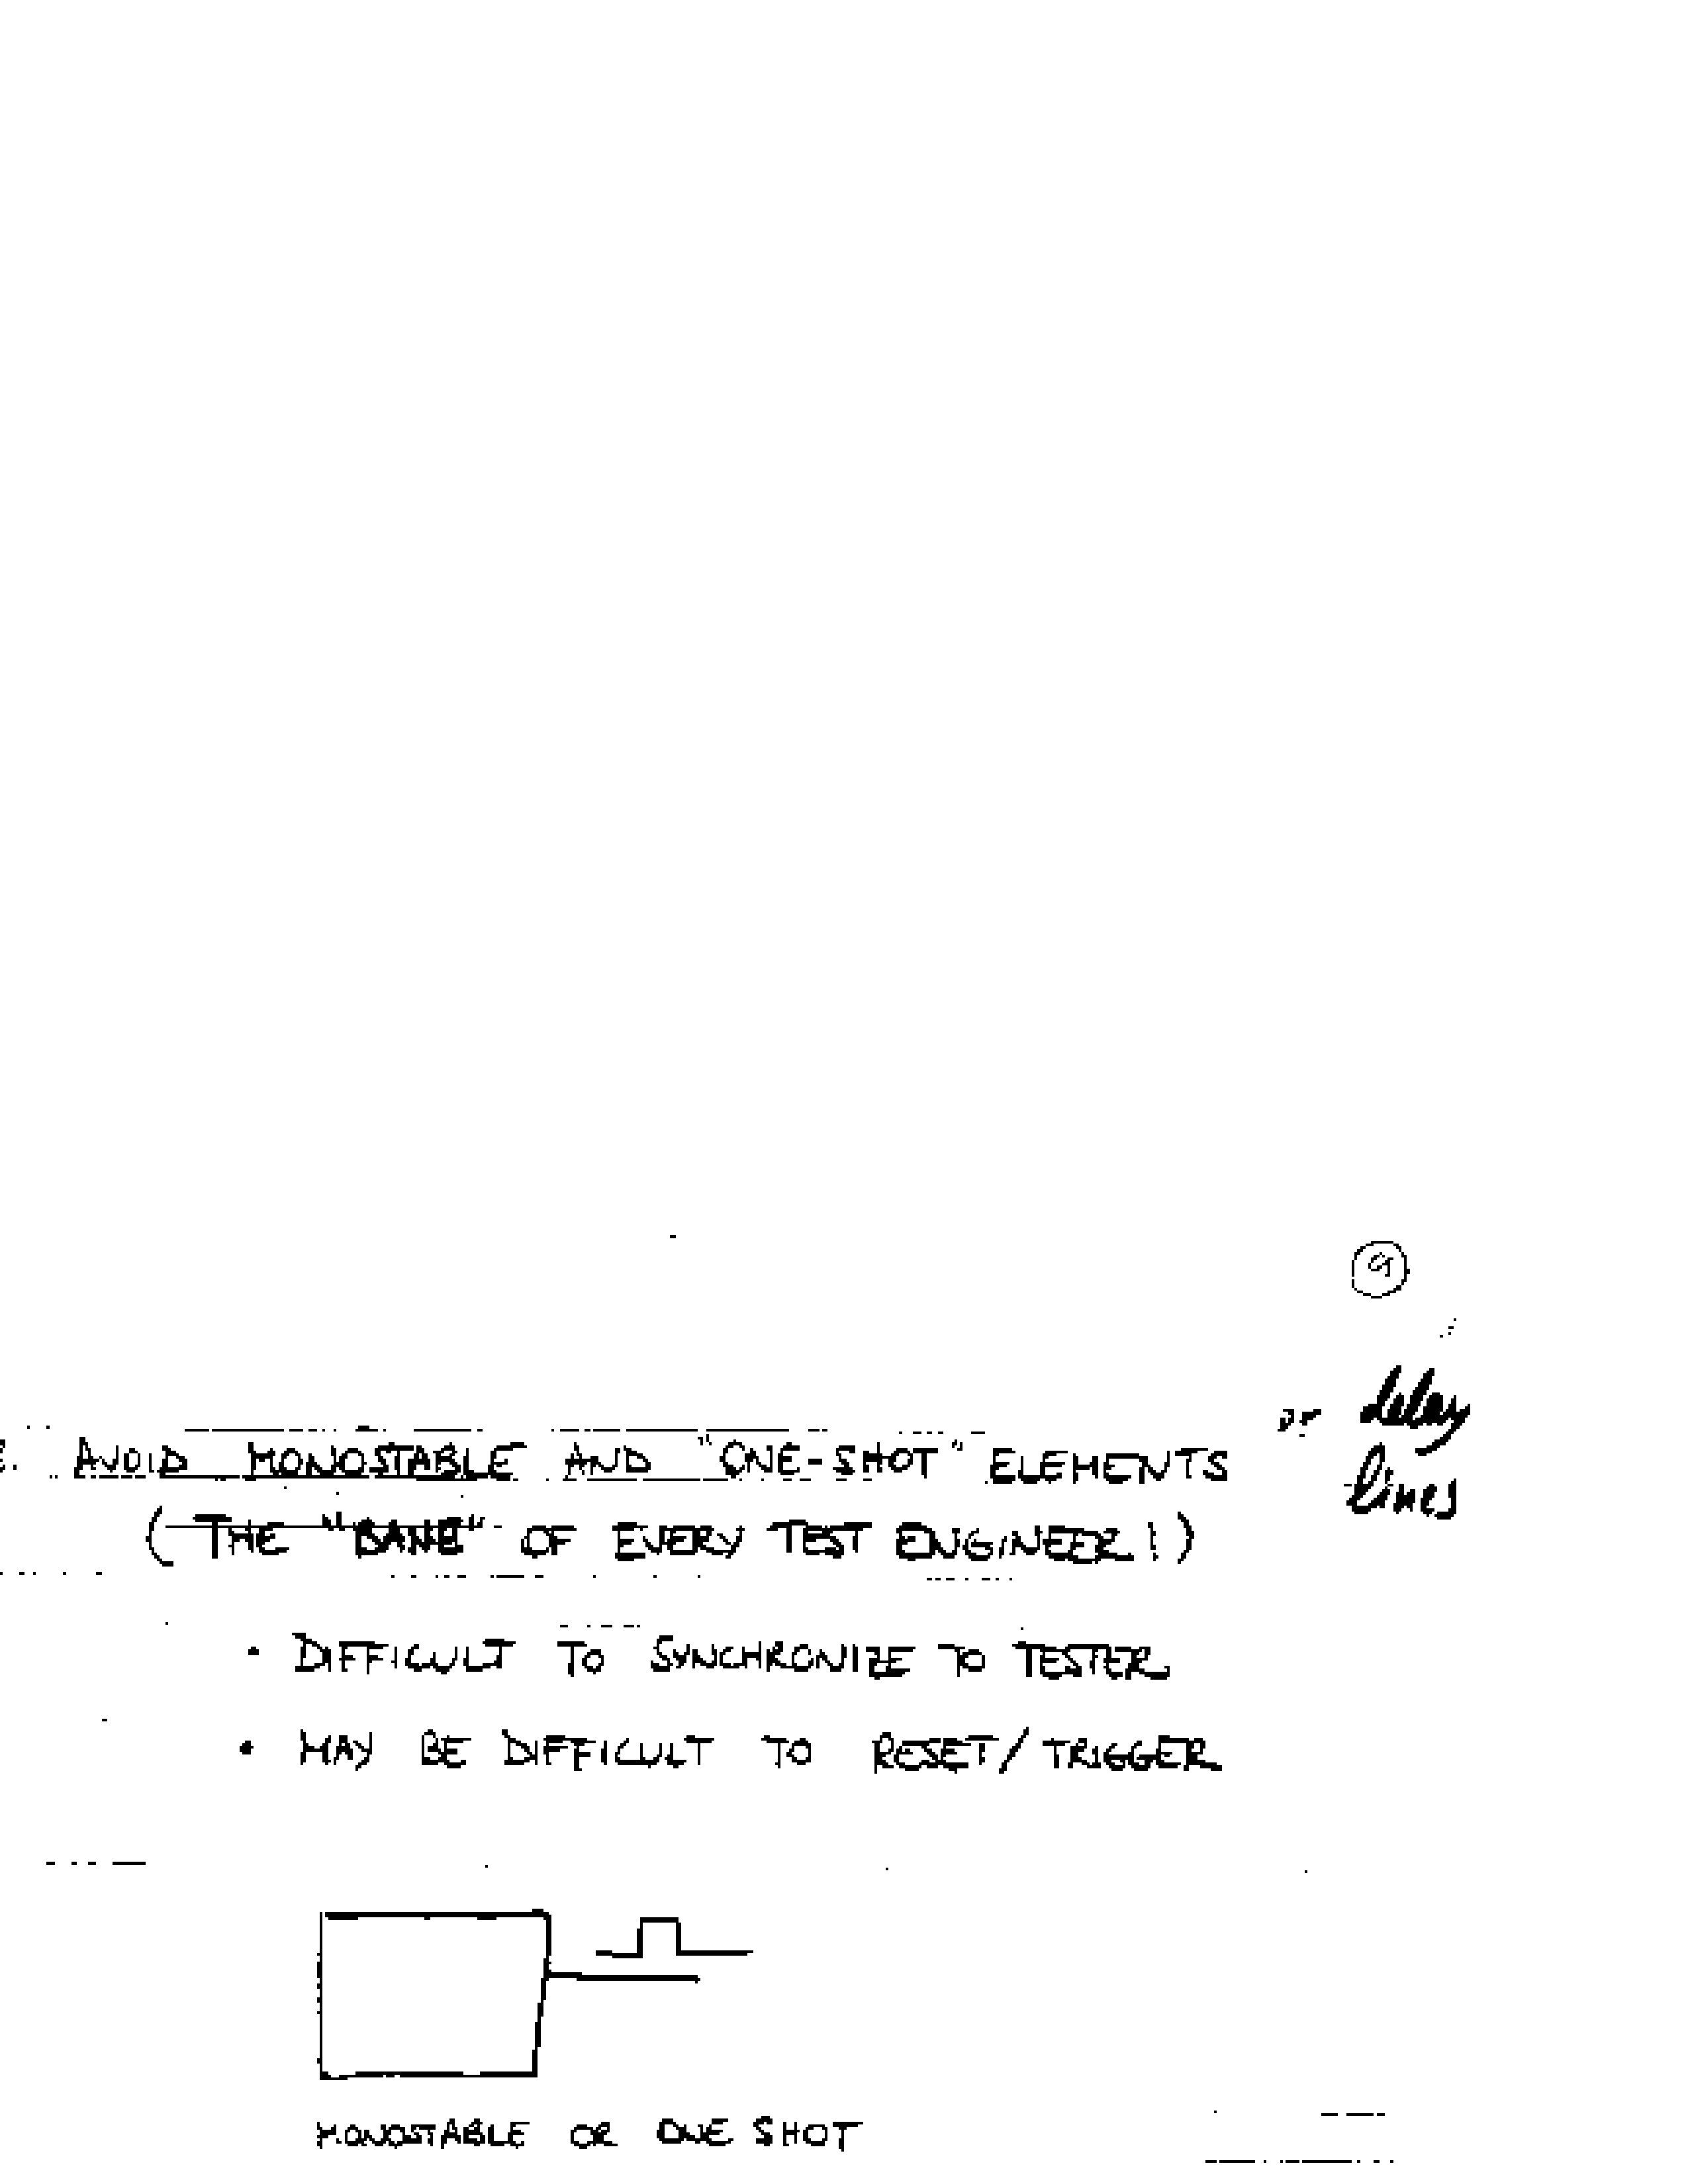 9
or delay
lines
AVOID MONOSTABLE AND "ONE-SHOT" ELEMENTS
(THE "BANE" OF EVERY TEST ENGINEER!)
• DIFFICULT TO SYNCHRONIZE TO TESTER
• MAY BE DIFFICULT TO RESET/TRIGGER
MONOSTABLE OR ONE SHOT